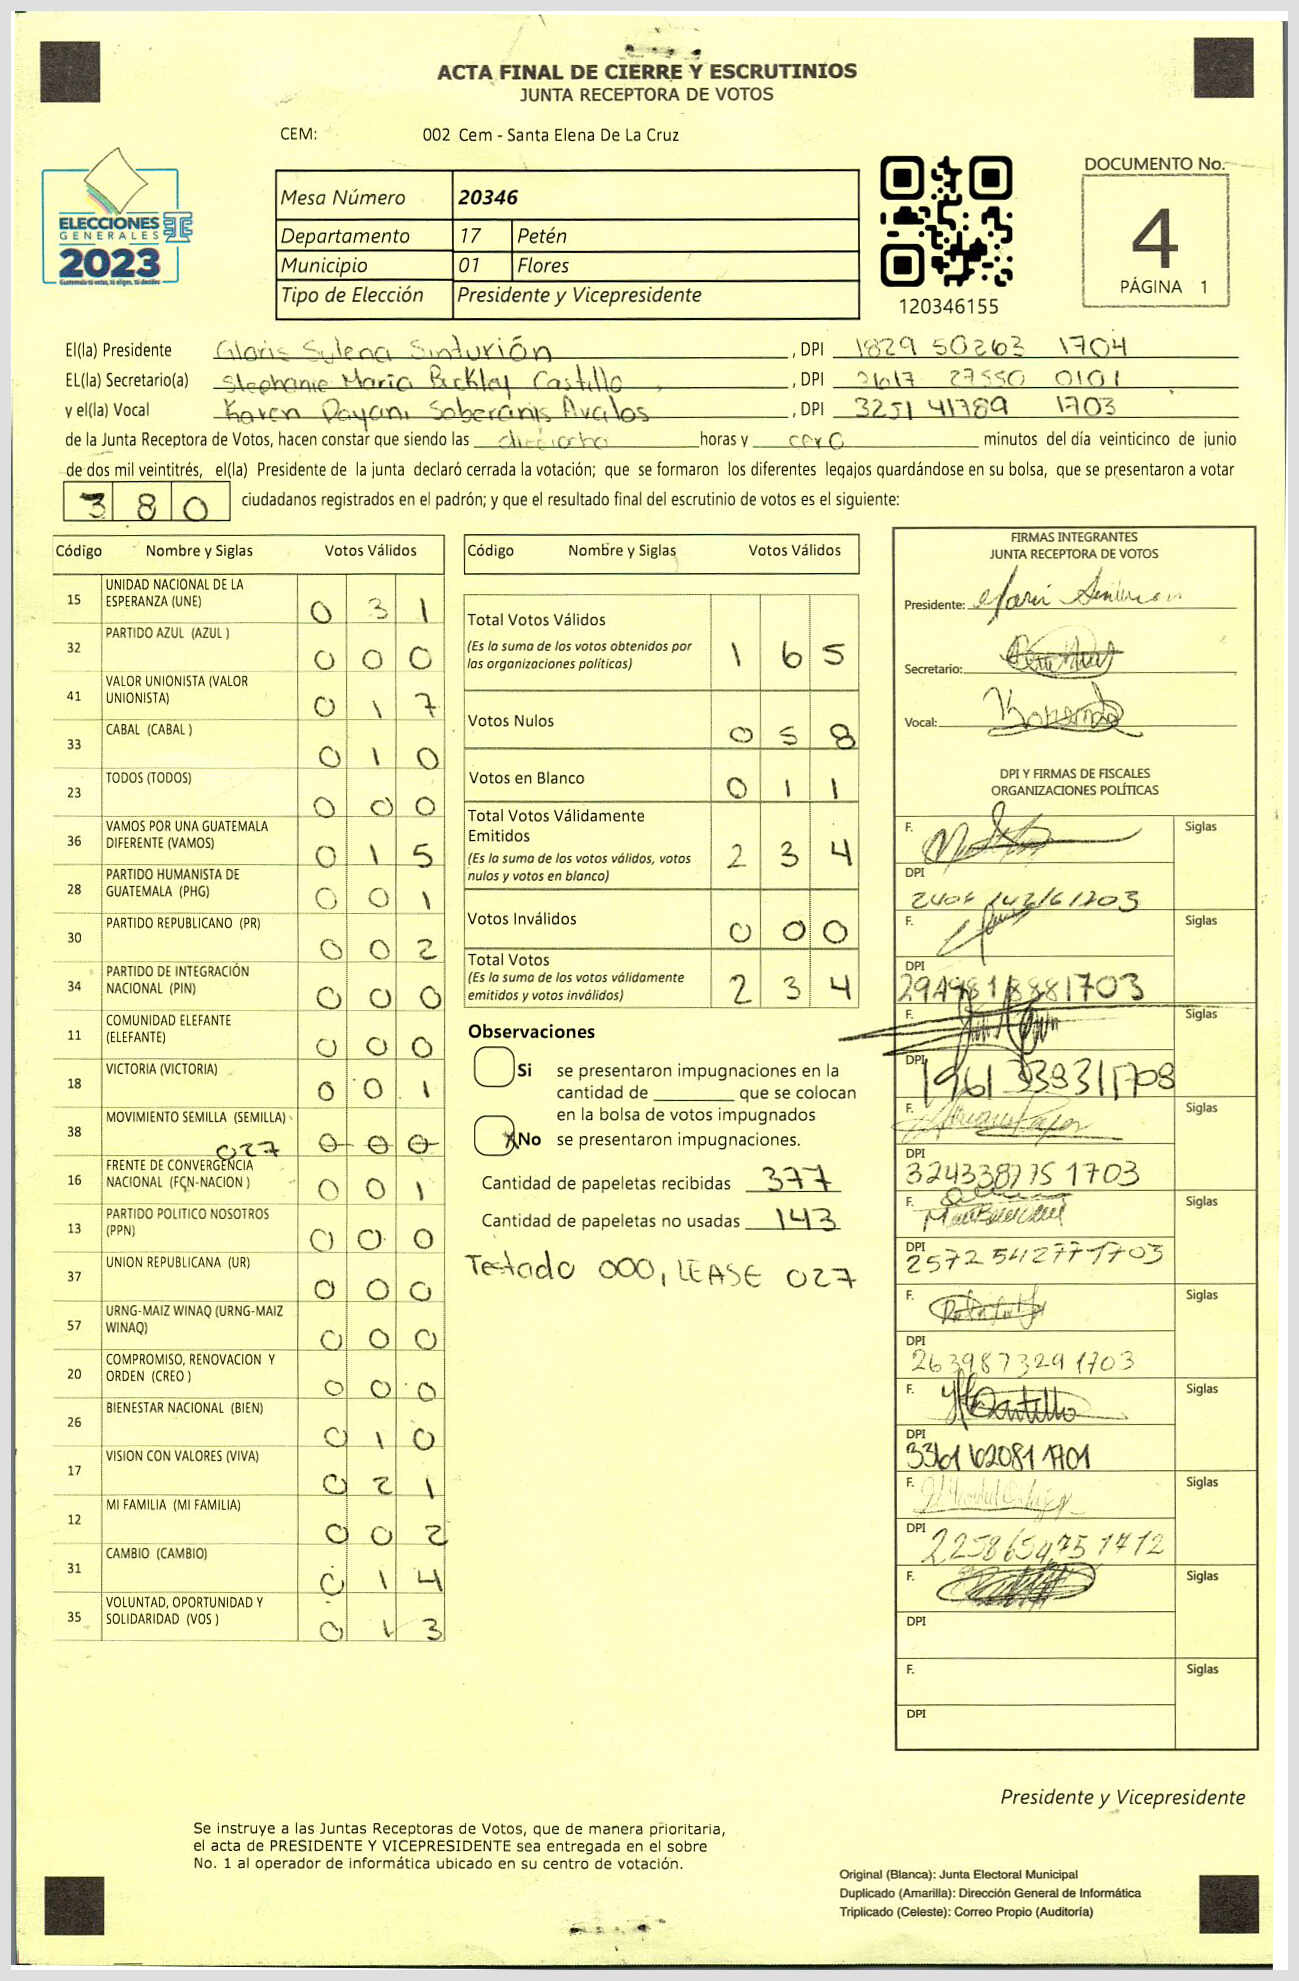 ACTA FINAL DE CIERRE Y ESCRUTINIOS
JUNTA RECEPTORA DE VOTOS
CEM: 002 Cem - Santa Elena De La Cruz
ELECCIONES
GENERALES
2023
Mesa Número 20346
Departamento 17 Petén
Municipio 01 Flores
Tipo de Elección Presidente y Vicepresidente
120346155
DOCUMENTO No.
4
PÁGINA 1
El(la) Presidente Gloris Sylena Sinturión, DPI 1829 50263 1704
EL(la) Secretario(a) Stephanie Maria Peckley Castillo, DPI 2617 27550 0101
y el(la) Vocal Karen Dayani Soberanis Avalos, DPI 3251 41789 1703
de la Junta Receptora de Votos, hacen constar que siendo las dieciocho horas y cero minutos del día veinticinco de junio
de dos mil veintitrés, el(la) Presidente de la junta declaró cerrada la votación; que se formaron los diferentes legajos quardándose en su bolsa, que se presentaron a votar
380 ciudadanos registrados en el padrón; y que el resultado final del escrutinio de votos es el siguiente:
Código Nombre y Siglas Votos Válidos
15 UNIDAD NACIONAL DE LA ESPERANZA (UNE) 031
32 PARTIDO AZUL (AZUL ) 000
41 VALOR UNIONISTA (VALOR UNIONISTA) 017
33 CABAL (CABAL ) 010
23 TODOS (TODOS) 000
36 VAMOS POR UNA GUATEMALA DIFERENTE (VAMOS) 015
28 PARTIDO HUMANISTA DE GUATEMALA (PHG) 001
30 PARTIDO REPUBLICANO (PR) 002
34 PARTIDO DE INTEGRACIÓN NACIONAL (PIN) 000
11 COMUNIDAD ELEFANTE (ELEFANTE) 000
18 VICTORIA (VICTORIA) 001
38 MOVIMIENTO SEMILLA (SEMILLA) 027 000
16 FRENTE DE CONVERGENCIA NACIONAL (FCN-NACION ) 001
13 PARTIDO POLITICO NOSOTROS (PPN) 000
37 UNION REPUBLICANA (UR) 000
57 URNG-MAIZ WINAQ (URNG-MAIZ WINAQ) 000
20 COMPROMISO, RENOVACION Y ORDEN (CREO ) 000
26 BIENESTAR NACIONAL (BIEN) 010
17 VISION CON VALORES (VIVA) 021
12 MI FAMILIA (MI FAMILIA) 002
31 CAMBIO (CAMBIO) 014
35 VOLUNTAD, OPORTUNIDAD Y SOLIDARIDAD (VOS ) 013
Código Nombre y Siglas Votos Válidos
Total Votos Válidos
(Es la suma de los votos obtenidos por
las organizaciones políticas)
165
Votos Nulos 058
Votos en Blanco 011
Total Votos Válidamente
Emitidos
(Es la suma de los votos válidos, votos
nulos y votos en blanco)
234
Votos Inválidos 000
Total Votos
(Es la suma de los votos válidamente
emitidos y votos inválidos)
234
Observaciones
Si se presentaron impugnaciones en la
cantidad de ________ que se colocan
en la bolsa de votos impugnados
X No se presentaron impugnaciones.
Cantidad de papeletas recibidas 377
Cantidad de papeletas no usadas 143
Testado 000, LEASE 027
FIRMAS INTEGRANTES
JUNTA RECEPTORA DE VOTOS
Presidente:
Secretario:
Vocal:
DPI Y FIRMAS DE FISCALES
ORGANIZACIONES POLÍTICAS
F. Siglas
DPI
F. Siglas
DPI
2949818881703
F. Siglas
DPI
1961 33931 1708
F. Siglas
DPI
3243387751703
F. Siglas
DPI
2572 54277 1703
F. Siglas
DPI
2639873291703
F. Siglas
DPI
3361620811701
F. Siglas
DPI
2258654751712
F. Siglas
DPI
F. Siglas
DPI
Presidente y Vicepresidente
Se instruye a las Juntas Receptoras de Votos, que de manera prioritaria,
el acta de PRESIDENTE Y VICEPRESIDENTE sea entregada en el sobre
No. 1 al operador de informática ubicado en su centro de votación.
Original (Blanca): Junta Electoral Municipal
Duplicado (Amarilla): Dirección General de Informática
Triplicado (Celeste): Correo Propio (Auditoría)